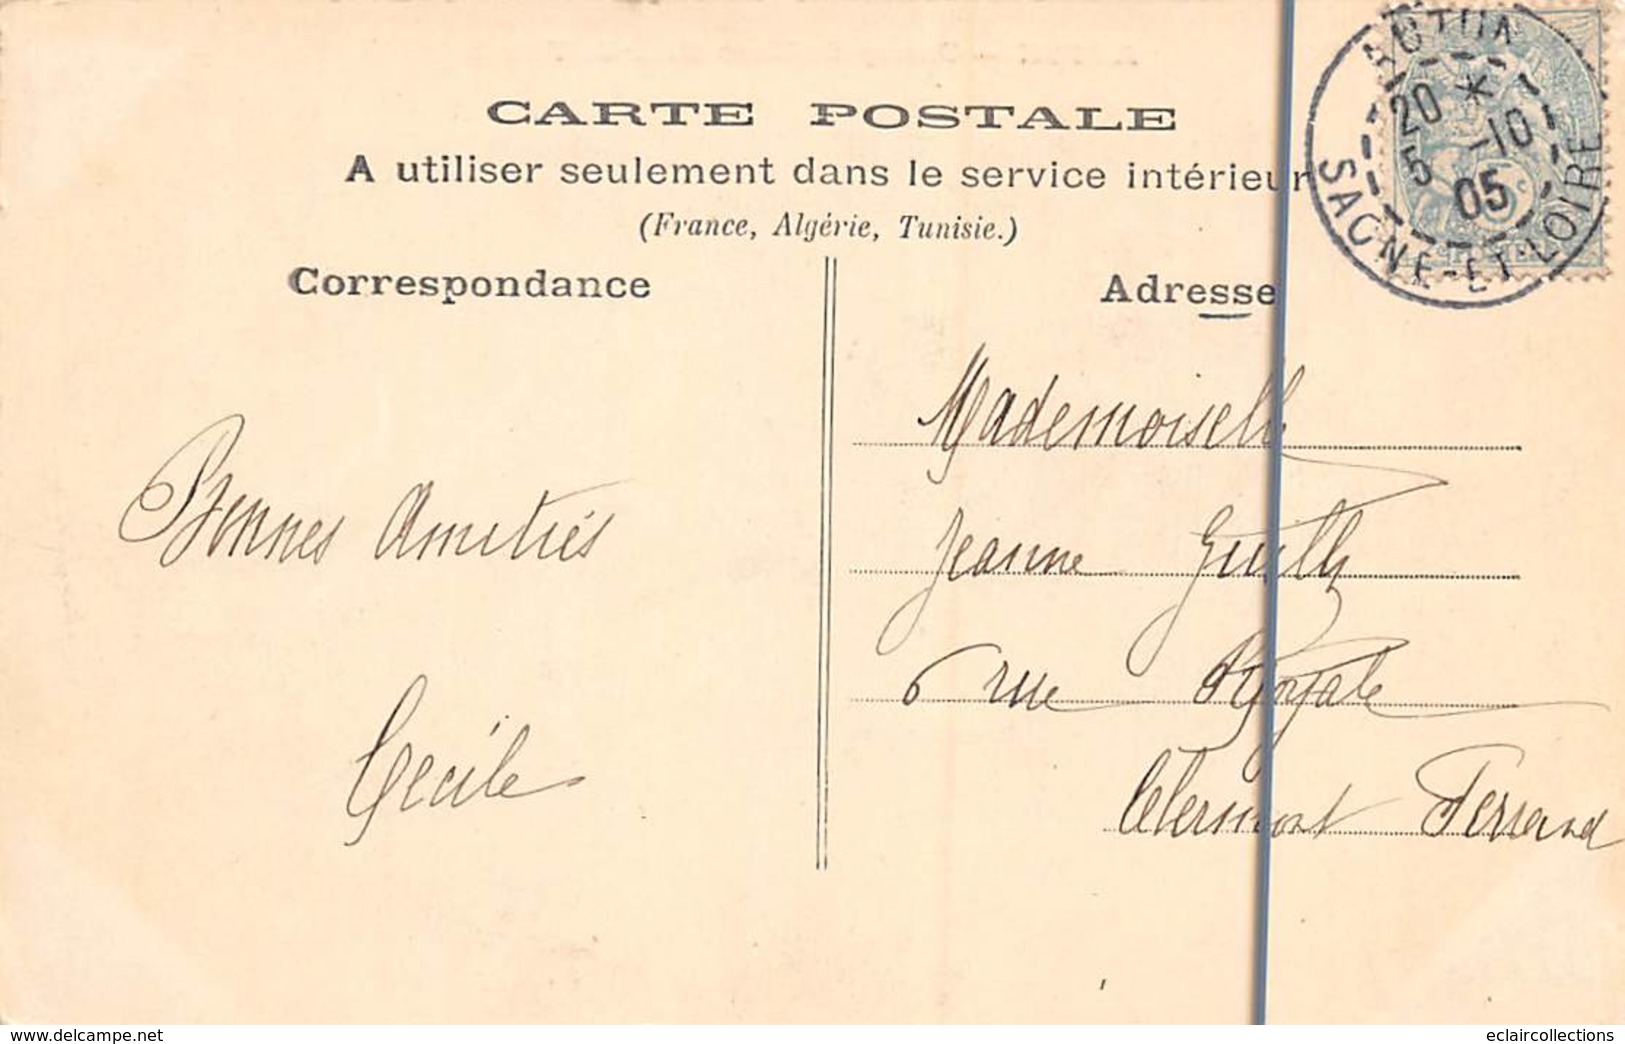 CARTE POSTALE
A utiliser seulement dans le service intérieur
(France, Algérie, Tunisie.)
Correspondance
Adresse
AUTUN
20 * 1
5 -10
05
SAONE-ET-LOIRE
Bonnes Amitiés
Cécile
Mademoiselle
Jeanne
6 rue Royale
Clermont Ferrand
www.delcampe.net
eclaircollections